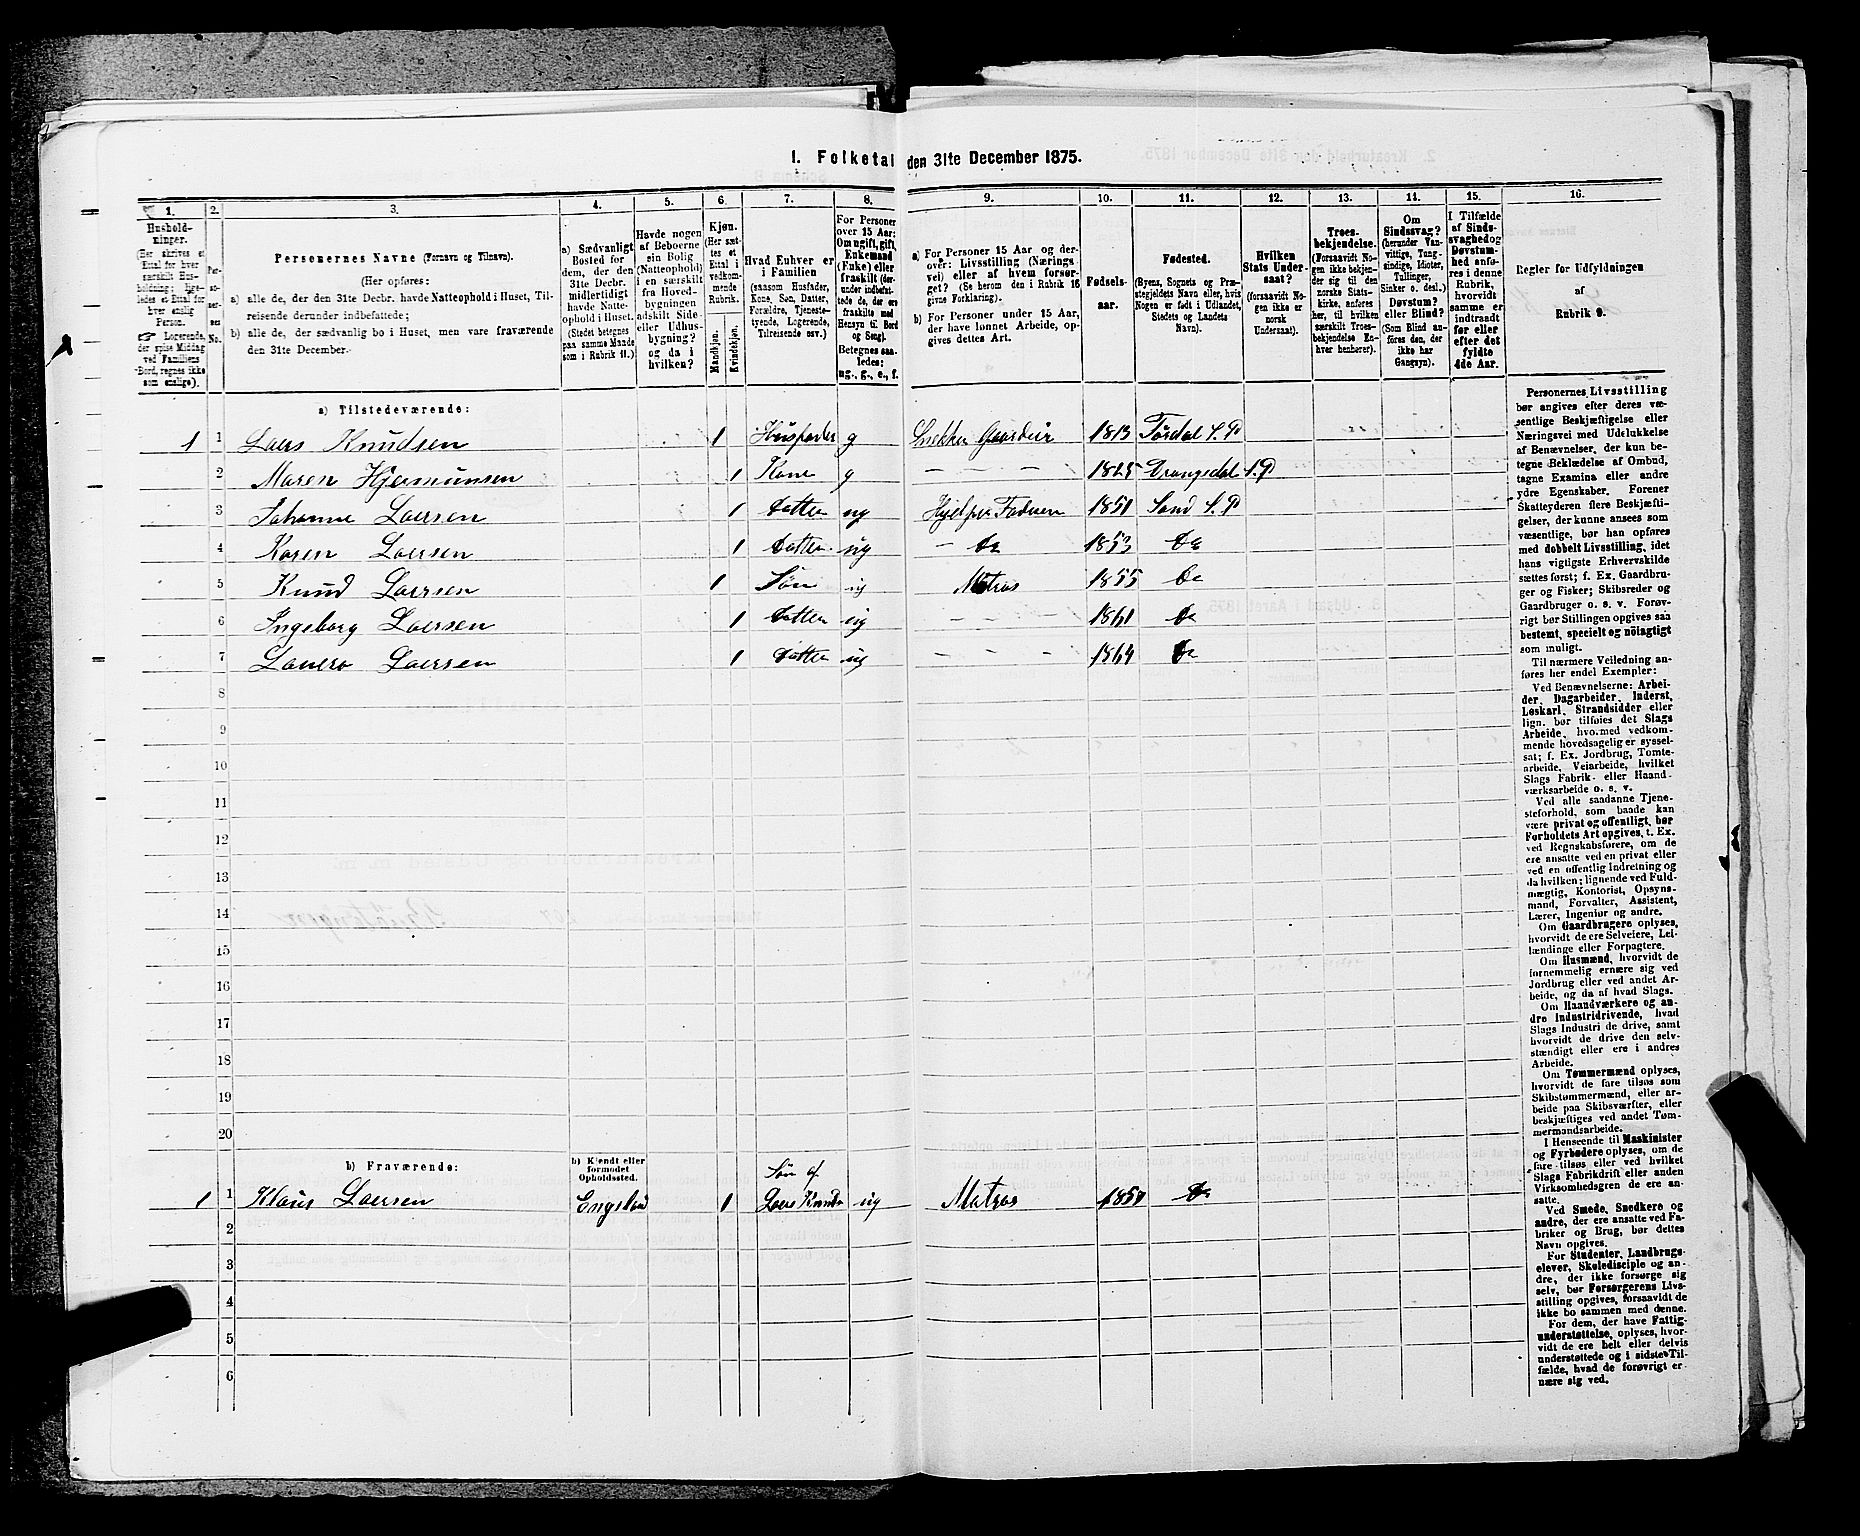 1. Folketal den 31te December 1875.
1. 2. 3. 4. 5. 6. 7. 8. 9. 10. 11. 12. 13. 14. 15. 16.
Husholdninger.
(Her skrives et Ettal for hver særskilt Husholdning; ligeledes et Ettal for hver enslig Person.
Logerende, der spise Middag ved Familiens Bord, regnes ikke som enslige).
Personernes No.
Personernes Navne (Fornavn og Tilnavn).
(Her opføres:
a) alle de, der den 31te Decbr. havde Natteophold i Huset, Tilreisende derunder indbefattede;
b) alle de, der sædvanlig bo i Huset, men vare fraværende den 31te December.
a) Sædvanligt Bosted for dem, der den 31te Decbr. midlertidigt havde Natteophold i Huset. (Stedet betegnes paa samme Maade som i Rubrik 11.)
Havde nogen af Beboerne sin Bolig (Natteophold) i en særskilt fra Hovedbygningen adskilt Side- eller Udhusbygning? og da i hvilken?
Kjøn. (Her sættes et Ettal i vedkommende Rubrik.
Mandkjøn. Kvindekjøn.
Hvad Enhver er i Familien (saasom Husfader, Kone, Søn, Datter, Forældre, Tjenestetyende, Logerende, Tilreisende osv.)
For Personer over 15 Aar: Om ugift, gift, Enkemand (Enke) eller fraskilt (derunder indbefattede de, der ere fraskilte med Hensyn til Bord og Seng). Betegnes saaledes: ug., g., e., f.
a) For Personer 15 Aar og derover: Livsstilling (Næringsvei) eller af hvem forsørget? (Se herom den i Rubrik 16 givne Forklaring).
b) For Personer under 15 Aar, der have lønnet Arbeide, opgives dettes Art.
Fødselsaar.
Fødested.
(Byens, Sognets og Præstegjeldets Navn eller, hvis Nogen er født i Udlandet, Stedets og Landets Navn).
Hvilken Stats Undersaat?
(forsaavidt Nogen ikke er norsk Undersaat).
Troesbekjendelse.
(Forsaavidt Nogen ikke bekjender sig til den norske Statskirke, anføres her, til hvilken særskilt Troesbekjendelse Enhver henhører).
Om Sindssvag? (herunder Vanvittige, Tungsindige, Idioter, Tullinger, Sinker o. desl.) Døvstum? eller Blind? (Som Blind anføres den, der ikke har Gangsyn).
I Tilfælde af Sindssvaghed og Døvstumhed anføres i denne Rubrik, hvorvidt samme er indtraadt før eller efter det fyldte 4de Aar.
Regler for Udfyldningen
af
Rubrik 9.
a) Tilstedeværende:
1 1 Laers Knudsen 1 Husfader g Snekker Gaardeir 1813 Tørdal S. P
2 Maren Hjermunsen 1 Kone g - - - 1825 Drangedal S. P
3 Johanne Laersen 1 Datter ug Hjelper Faderen 1851 Sand S. P
4 Karen Laersen 1 Datter ug - Do 1853 Do
5 Knud Laersen 1 Søn ug Matros 1855 Do
6 Ingeborg Laersen 1 Datter ug - - - 1861 Do
7 Laersen 1 Datter ug - - - 1864 Do
8
9
10
11
12
13
14
15
16
17
18
19
20
b) Fraværende:
b) Kjendt eller formodet Opholdssted.
Søn af
1 1 Klaus Laersen England 1 Laers Knuds ug Matros 1857 Do
2
3
4
5
6
Personernes Livsstilling
bør angives efter deres væ-
sentlige Beskjæftigelse eller
Næringsvei med Udelukkelse
af Benævnelser, der kun be-
tegne Beklædelse af Ombud,
tagne Examina eller andre
ydre Egenskaber. Forener
Skatteyderen flere Beskjæfti-
gelser, der kunne ansees som
væsentlige, bør han opføres
med dobbelt Livsstilling, idet
hans vigtigste Erhvervskilde
sættes først; f. Ex. Gaardbru-
ger og Fisker; Skibsreder og
Gaardbruger o. s. v. Forøv-
rigt bør Stillingen opgives saa
bestemt, specielt og nøiagtigt
som muligt.
Til nærmere Veiledning an-
føres her endel Exempler:
Ved Benævnelserne: Arbei-
der, Dagarbeider, Inderst,
Løskarl, Strandsidder eller
lign. bør tilføies det Slags
Arbeide, hvormed vedkom-
mende hovedsagelig er syssel-
sat; f. Ex. Jordbrug, Tomte-
arbeide, Veiarbeide, hvilket
Slags Fabrik- eller Haand-
værksarbeide o. s. v.
Ved alle saadanne Tjene-
steforhold, som baade kan
være privat og offentligt, bør
Forholdets Art opgives, t. Ex.
ved Regnskabsførere, om de
ere ansatte ved en privat eller
ved en offentlig Indretning og
da hvilken; lignende ved Fuld-
mægtig, Kontorist, Opsyns-
mand, Forvalter, Assistent,
Lærer, Ingeniør og andre.
Om Gaardbrugere oplyses,
hvorvidt de ere Selveiere, Lei-
lændinge eller Forpagtere.
Om Husmænd, hvorvidt de
fornemmelig ernære sig ved
Jordbrug eller ved andet Ar-
beide, og da af hvad Slags.
Om Haandværkere og an-
dre Industridrivende, hvad
Slags Industri de drive, samt
hvorvidt de drive den selv-
stændigt eller ere i andres
Arbeide.
Om Tømmermænd oplyses,
hvorvidt de fare tilsøs som
Skibstømmermænd, eller ar-
beide paa Skibsværfter, eller
beskjæftiges ved andet Tøm-
mermandsarbeide.
I Henseende til Maskinister
og Fyrbødere oplyses, om de
fare tilsøs eller ved hvilket
Slags Fabrikdrift eller anden
Virksomhedsgren de ere an-
satte.
Ved Smede, Snedkere og
andre, der ere ansatte ved Fa-
briker og Brug, bør dettes
Navn opgives.
For Studenter, Landbrugs-
elever, Skoledisciple og an-
dre, der ikke forsørge sig
selv, bør Forsørgerens Livs-
stilling opgives, forsaavidt de
ikke bo sammen med denne.
For dem, der have Fattig-
understøttelse, oplyses, hvor-
vidt de ere helt eller delvis
understøttede og i sidste Til-
fælde, hvad de forøvrigt er-
nære sig ved.